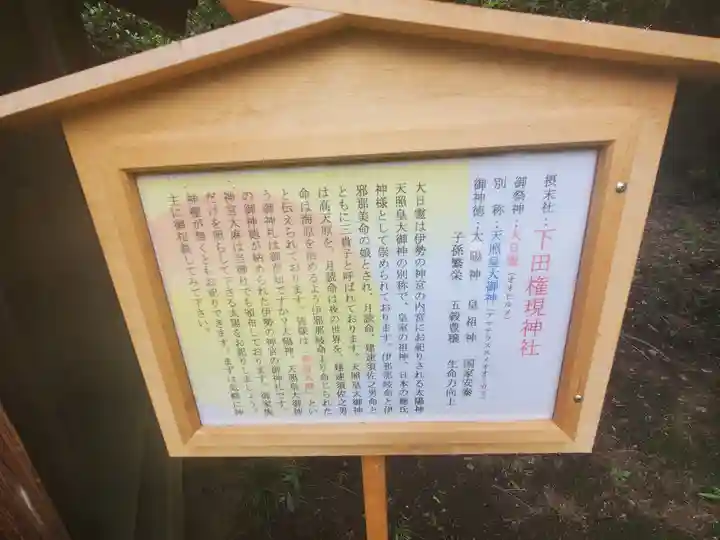 摂末社：下田権現神社
御祭神：大日孁（オオヒルメ）
別　称：天照皇大御神（アマテラススメオオミカミ）
御神徳：太陽神　皇祖神　国家安泰
子孫繁栄　五穀豊穣　生命力向上
大日孁は伊勢の神宮の内宮にお祀りされる太陽神
天照皇大御神の別称で、皇室の祖神、日本の総氏
神様として崇められております。伊邪那岐命と伊
邪那美命の娘とされ、月読命、建速須佐之男命と
ともに三貴子と呼ばれております。天照皇大御神
は高天原を、月読命は夜の世界を、建速須佐之男
命は海原を治めるよう伊邪那岐命より命じられた
と伝えられております。皆様は、とい
う御神札は御存知ですか？太陽神、天照皇大御神
の御神徳が納められた伊勢の神宮の御神札です。
神宮大麻は当神社でも頒布しております。御家族
だけを照らして下さる太陽をお祀りしましょう。
神棚が無くともお祀りできます。まずは気軽に神
主に御相談してみて下さい。